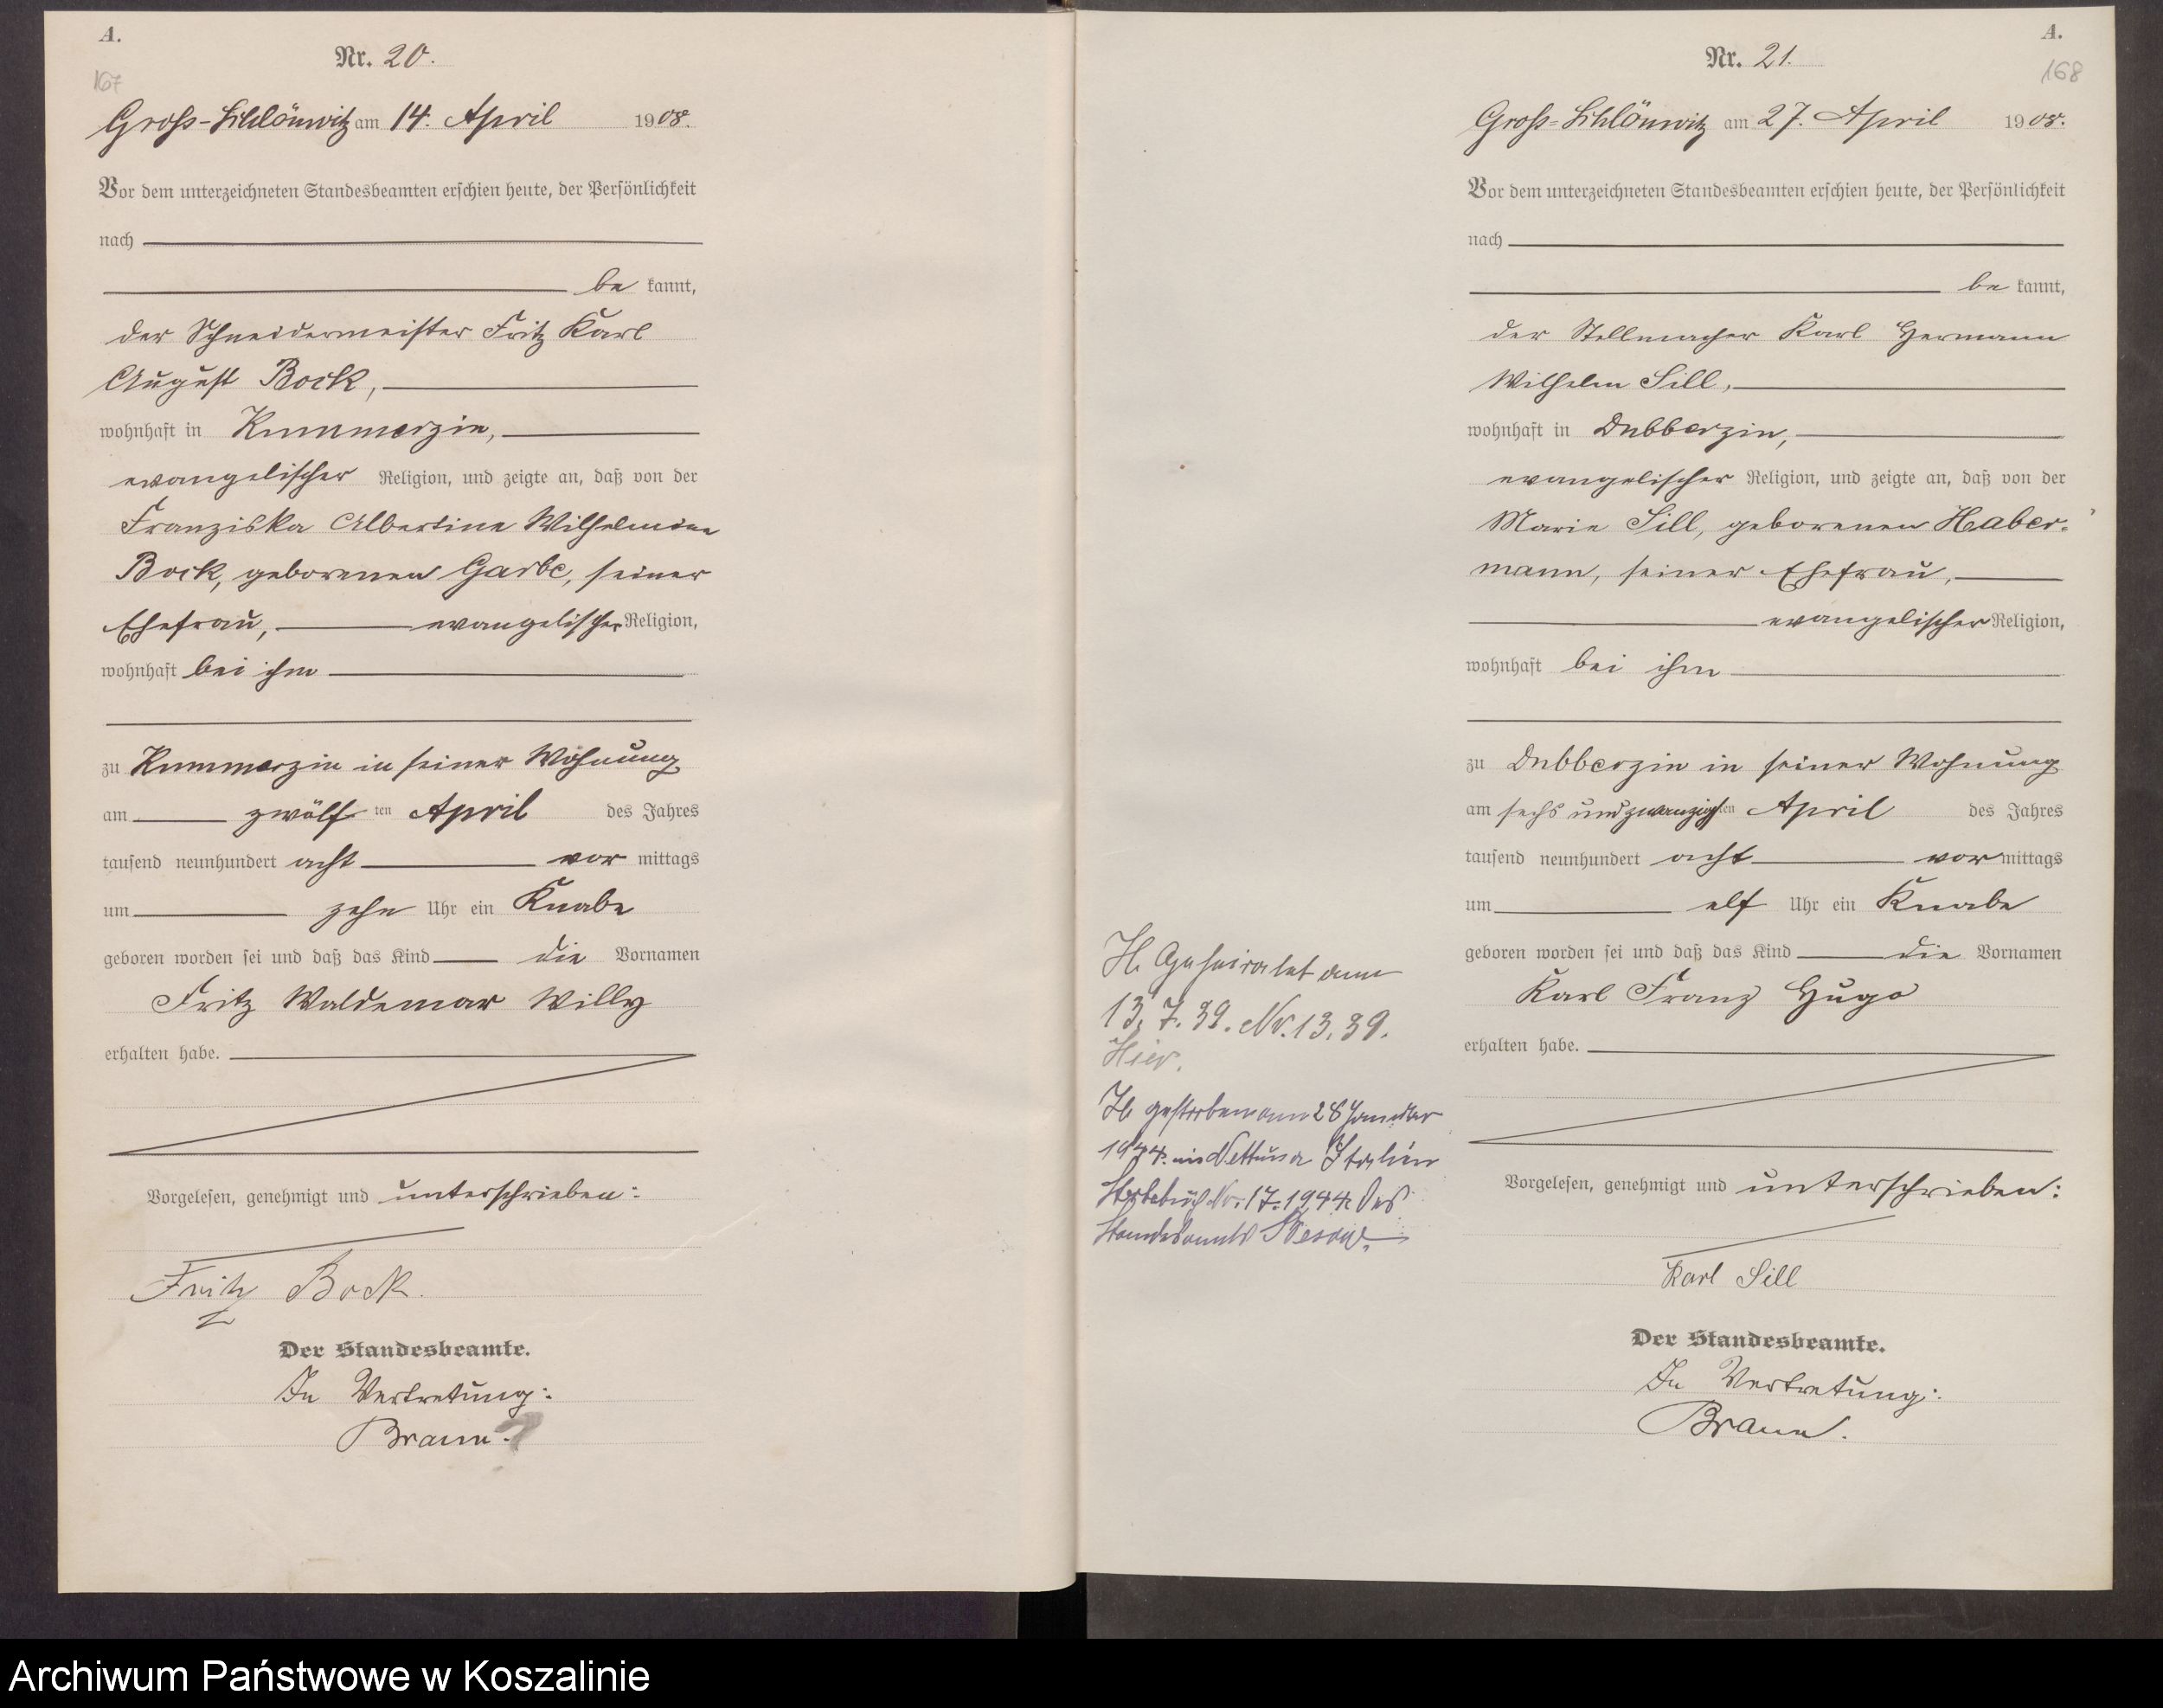 A.
Nr. 20.
167
Groß-Schlönwitz am 14. April 1908.
Vor dem unterzeichneten Standesbeamten erschien heute, der Persönlichkeit
nach
be kannt,
der Schneidermeister Fritz Karl
August Bock,
wohnhaft in Kummerzin,
evangelischer Religion, und zeigte an, daß von der
Franziska Albertine Wilhelmine
Bock, geborenen Garbe, seiner
Ehefrau, evangelischer Religion,
wohnhaft bei ihm
zu Kummerzin in seiner Wohnung
am zwölf ten April des Jahres
tausend neunhundert acht vor mittags
um zehn Uhr ein Knabe
geboren worden sei und daß das Kind die Vornamen
Fritz Waldemar Willy
erhalten habe.
Vorgelesen, genehmigt und unterschrieben:
Fritz Bock.
Der Standesbeamte.
In Vertretung:
Braun.
A.
Nr. 21.
168
Groß-Schlönwitz am 27. April 1908.
Vor dem unterzeichneten Standesbeamten erschien heute, der Persönlichkeit
nach
be kannt,
der Stellmacher Karl Hermann
Wilhelm Sill,
wohnhaft in Dubberzin,
evangelischer Religion, und zeigte an, daß von der
Marie Sill, geborenen Haber-
mann, seiner Ehefrau,
evangelischer Religion,
wohnhaft bei ihm
zu Dubberzin in seiner Wohnung
am sechs und zwanzigsten April des Jahres
tausend neunhundert acht vor mittags
um elf Uhr ein Knabe
geboren worden sei und daß das Kind die Vornamen
Karl Franz Hugo
erhalten habe.
Vorgelesen, genehmigt und unterschrieben:
Karl Sill
Der Standesbeamte.
In Vertretung:
Braun.
Geheiratet am
13. 7. 39. Nr. 13.39.
Hier.
gestorben am 28 Januar
1944. in Nettuno Italien
Sterbebuch Nr. 17. 1944 des
Standesamts
Archiwum Państwowe w Koszalinie